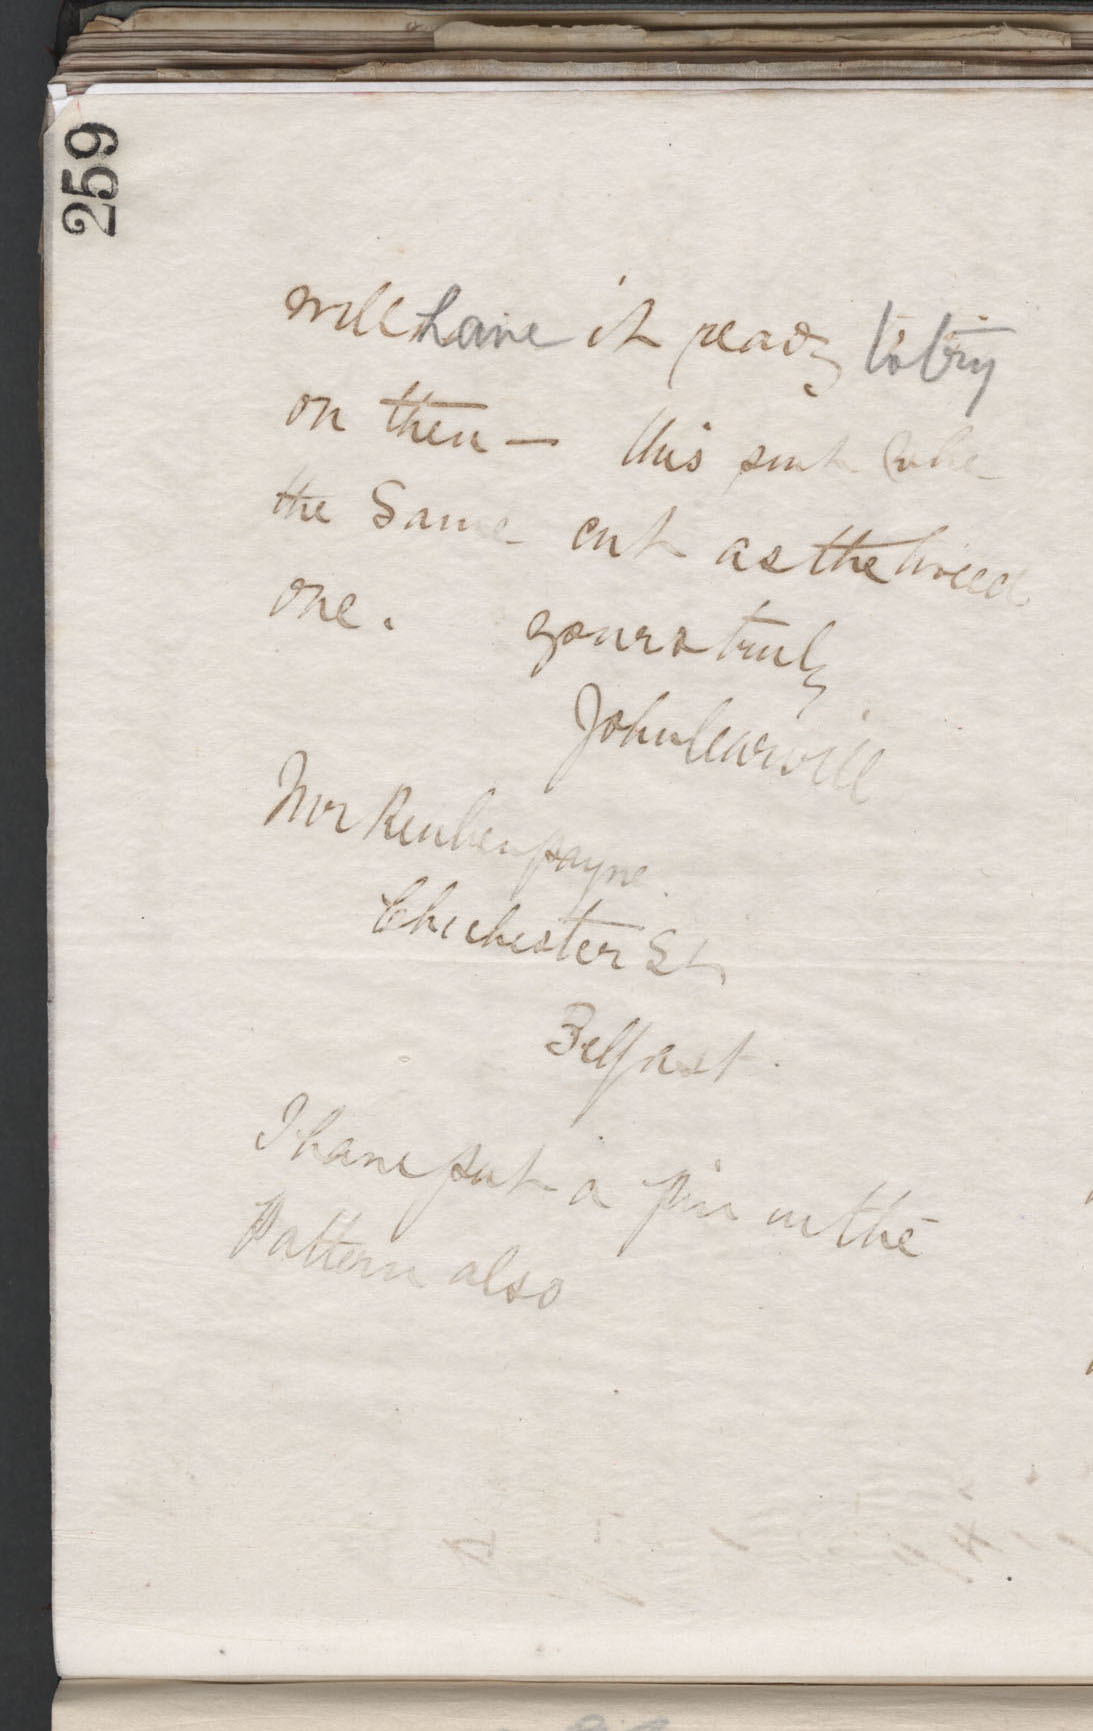 259
will have it ready to try
on then — this suit to be
the Same cut as the tweed
one. yours truly
John
Mr Reuben payne
Chichester St
Belfast.
I have put a pin in the
Pattern also